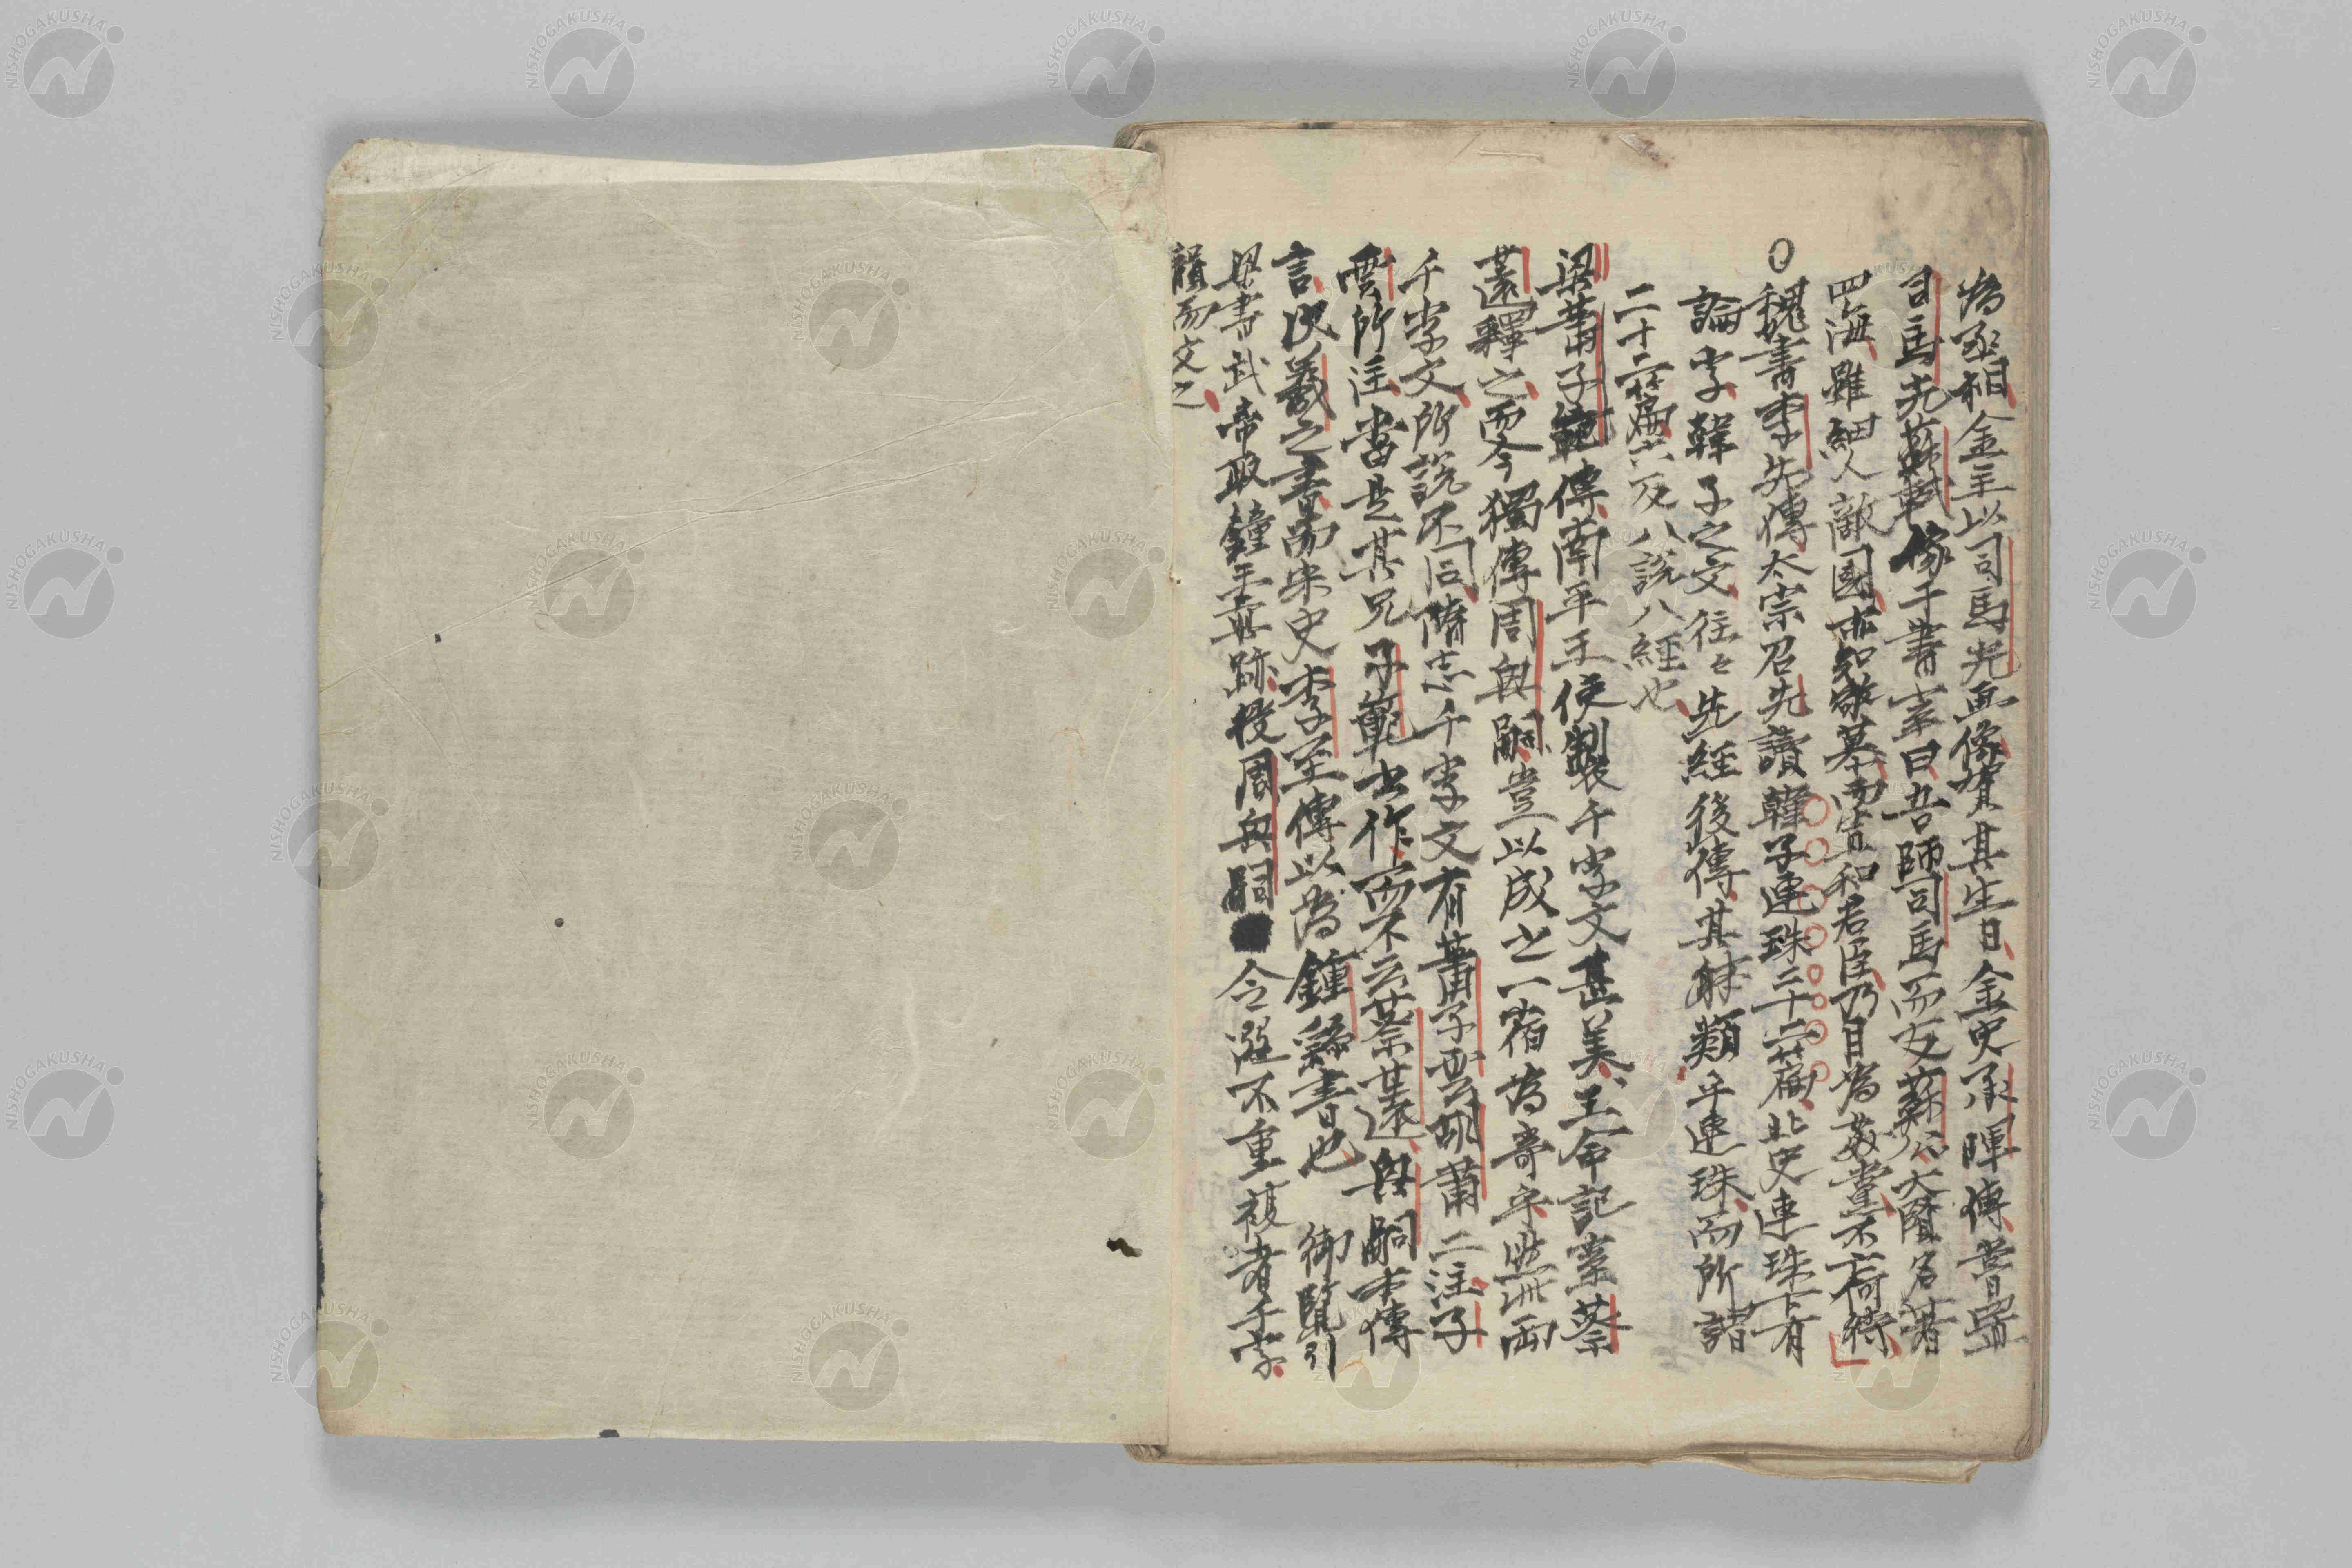 為丞相金主以司馬光畫像賀其生日金史承暉傳嘗置
司馬光蘇軾像于書室曰吾師司馬而友蘇公大賢名著
四海雖細人敵國亦知欽慕而當和君臣乃目為姦黨不
○魏書李先傳太宗召先讀韓子連珠二十二篇北史連珠下有
論字韓子之文往々先經後傳其體類乎連珠而所諸
二十二篇六反八説八經也
梁蕭子範傳南平王使製千字文其美王命記室蔡
薳釋之而今獨傳周興嗣豈以成之一宿為奇乎與此兩
千字文所説不同隋志千字文有蕭子雲胡蕭二注子
雲所注當是其兄子範之作而不云蔡薳興嗣本傳
言次羲之書而宋史李至傳以為鍾繇書也 御覽引
梁書武帝取鐘王真跡授周興嗣令選不重複者千字
韻而文之
NISHOGAKUSHA